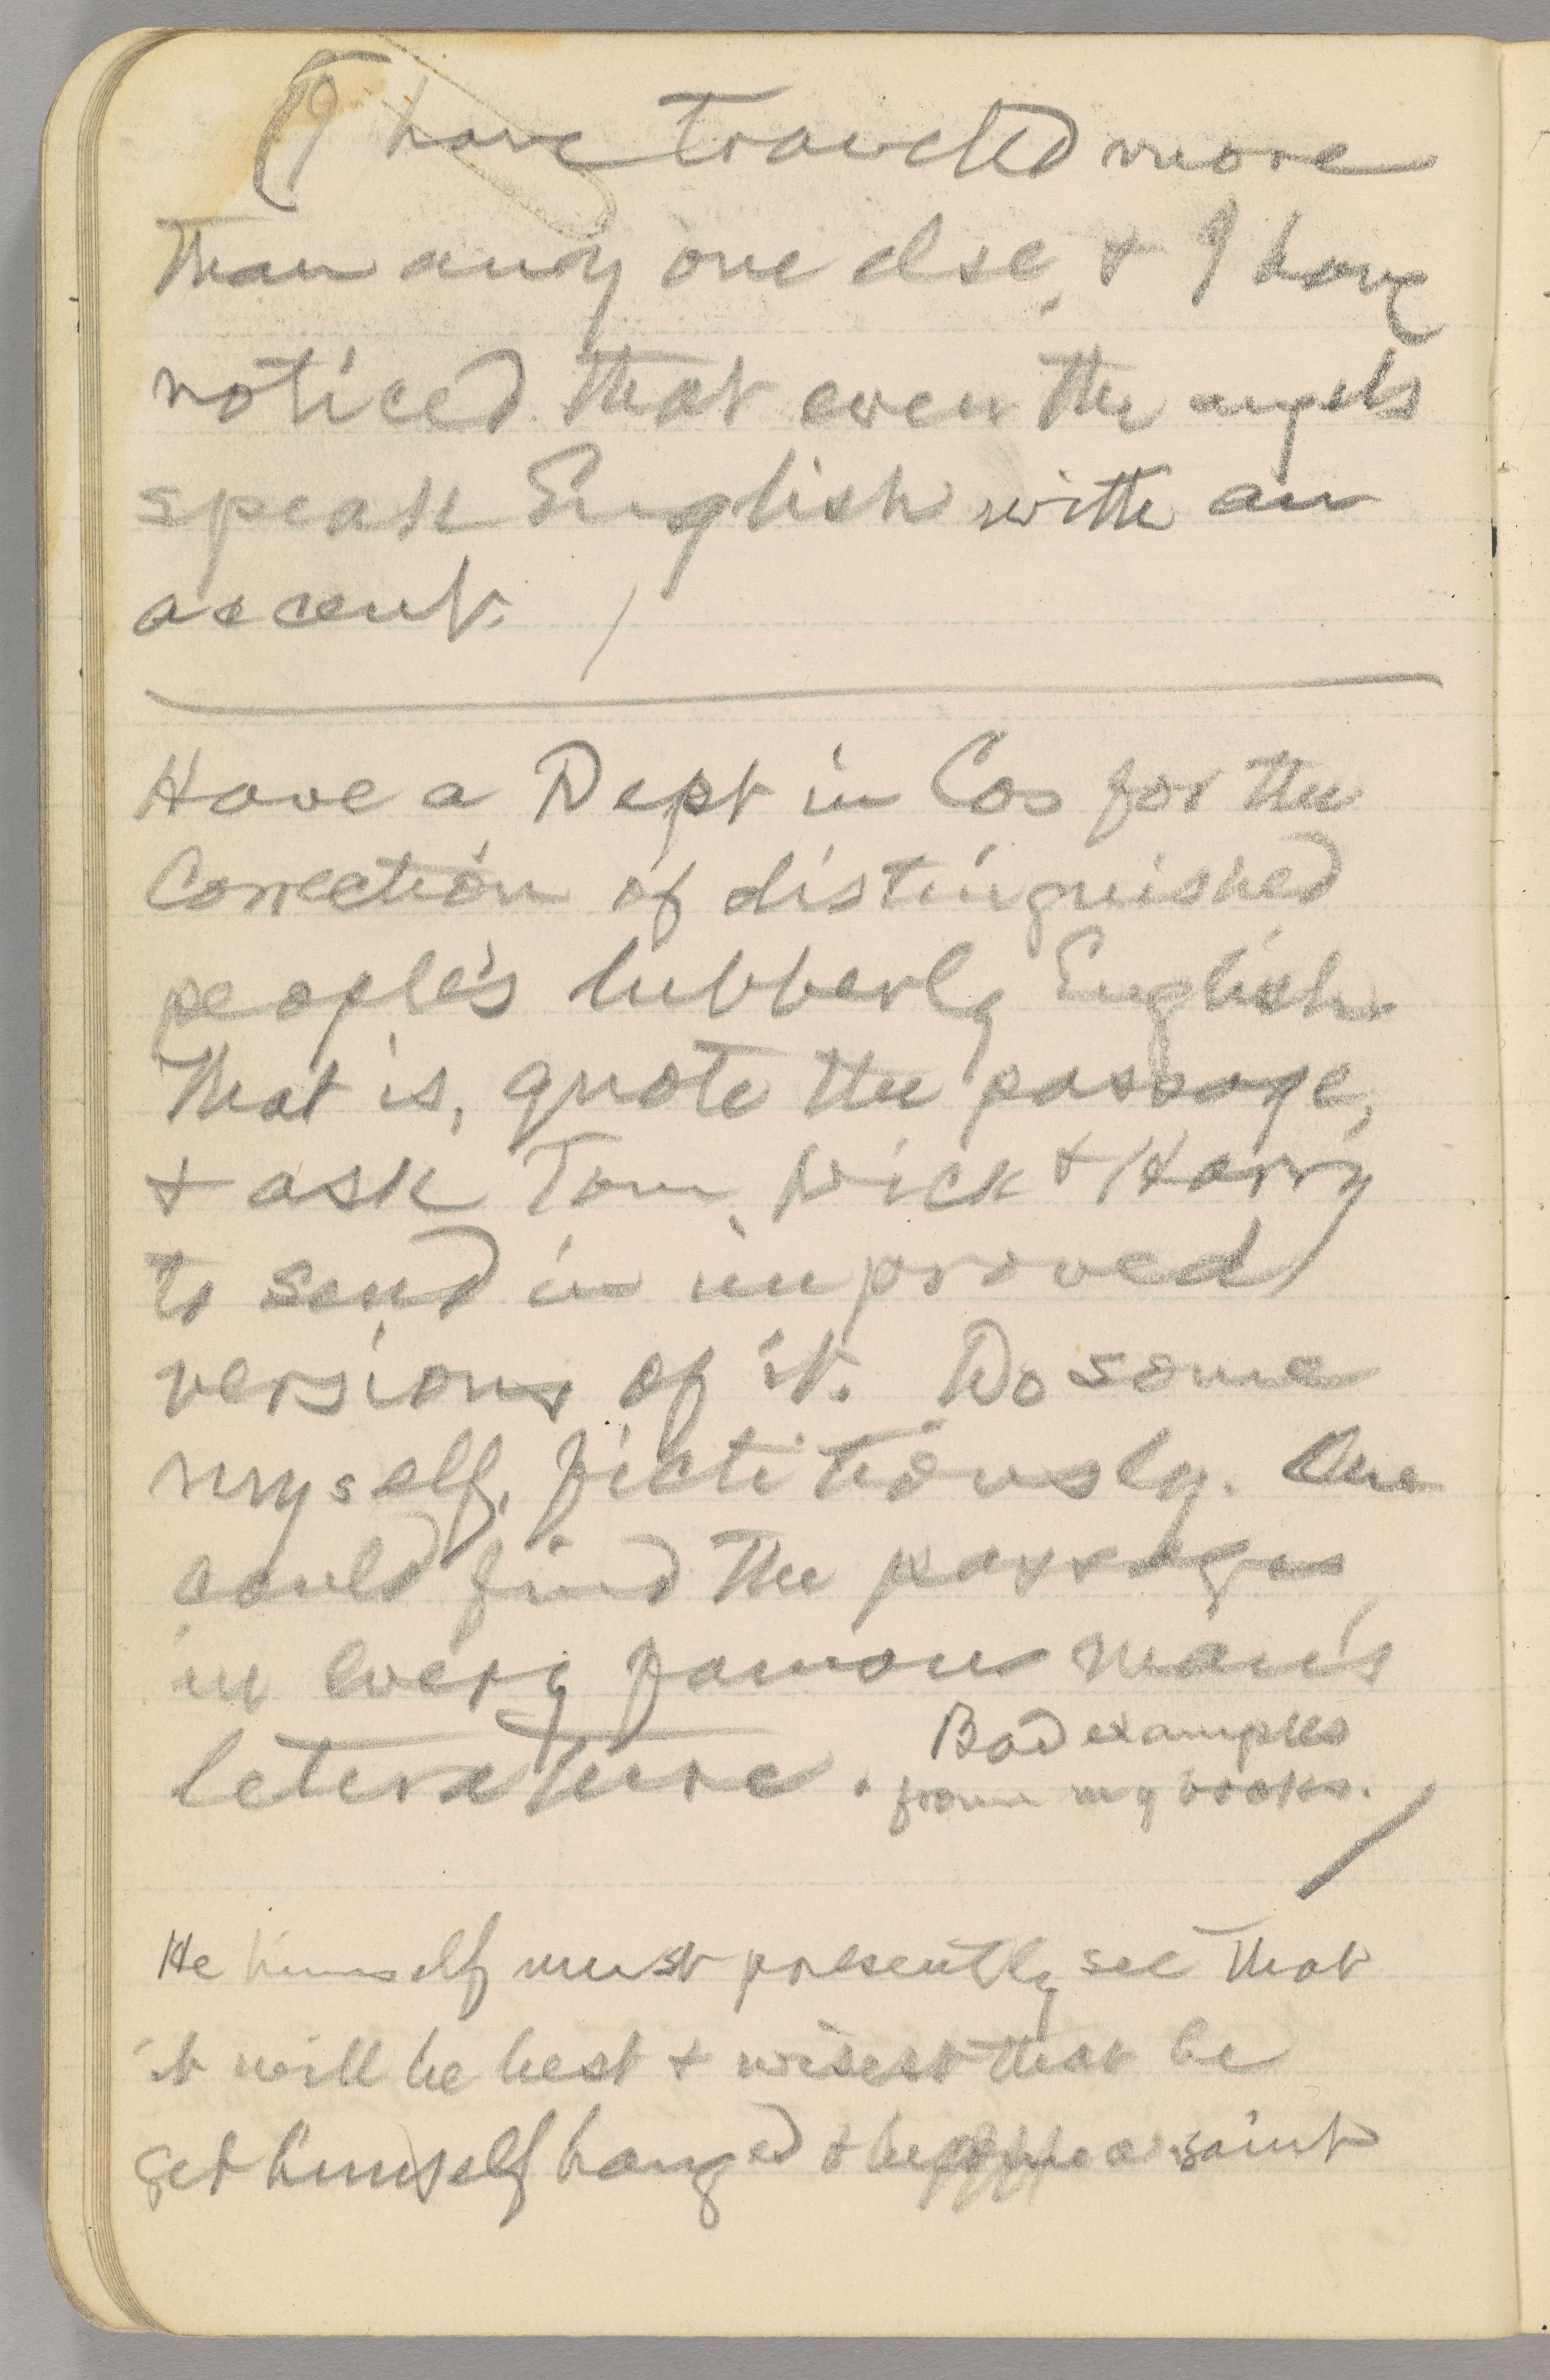 (I have traveled more
than any one else, & I have
noticed that even the angels
speak English with an
accent. )
Have a Dept in Cos for the
Correction of distinguished
people's lubberly English.
That is, quote the passage,
& ask Tom, Dick & Harry
to send in improved
versions of it. Do some
myself, fictitiously. One
could find the passages
in every famous man's
leterature. Bad examples
from my books.
He himself must presently see that
it will be best & wisest that he
get himself hanged & become a saint